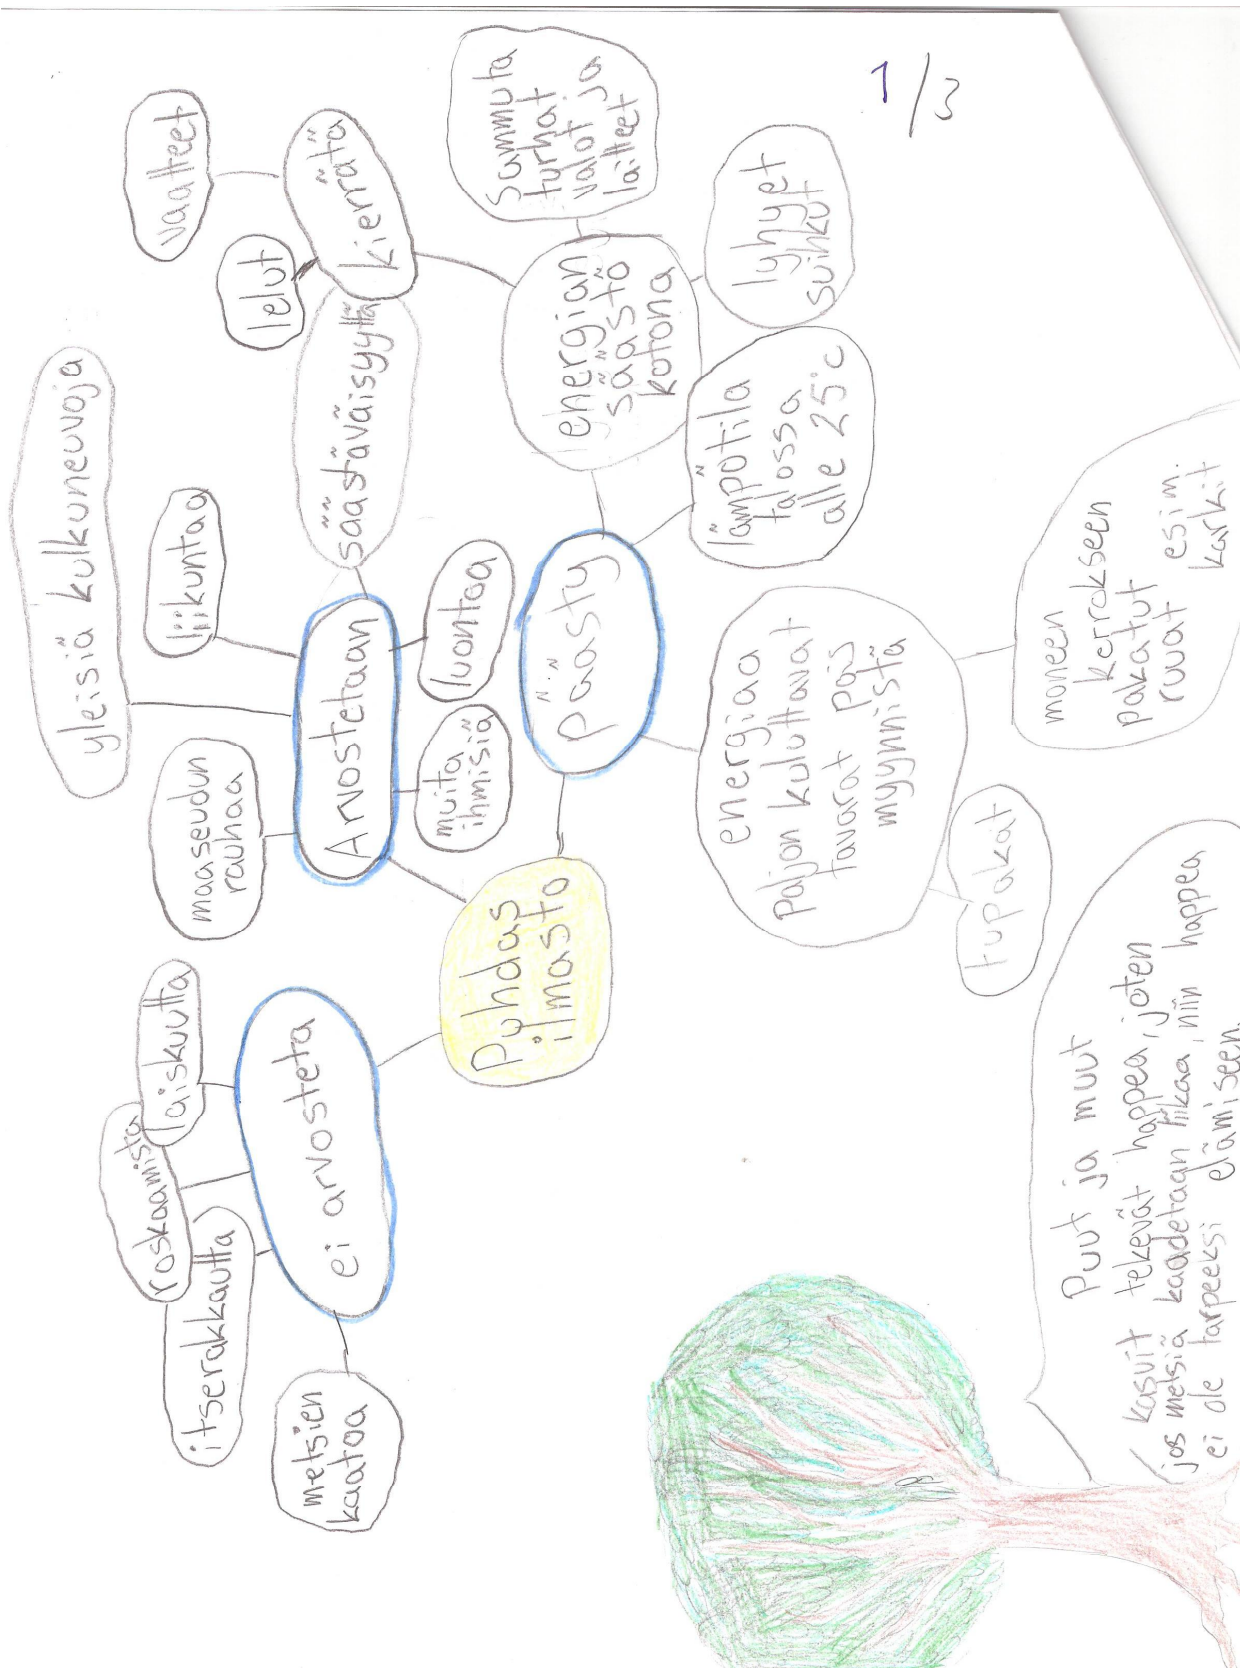 1/3
Puhdas
ilmasto
ei arvosteta
laiskuutta
roskaamista
itserakkautta
metsien
kaatoa
Arvostetaan
maaseudun
rauhaa
yleisiä kulkuneuvoja
liikuntaa
säästäväisyyttä
luontoa
muita
ihmisiä
kierrätä
lelut
vaatteet
Päästy
energian
säästö
kotona
sammuta
turhat
valot ja
laitteet
lyhyet
suihkut
lämpötila
talossa
alle 25°c
energiaa
paljon kuluttavat
tavarat pois
myynnistä
tupakat
moneen
kerrokseen
pakatut
ruuat esim.
karkit
Puut ja muut
kasvit tekevät happea, joten
jos metsiä kaadetaan liikaa, niin happea
ei ole tarpeeksi elämiseen.